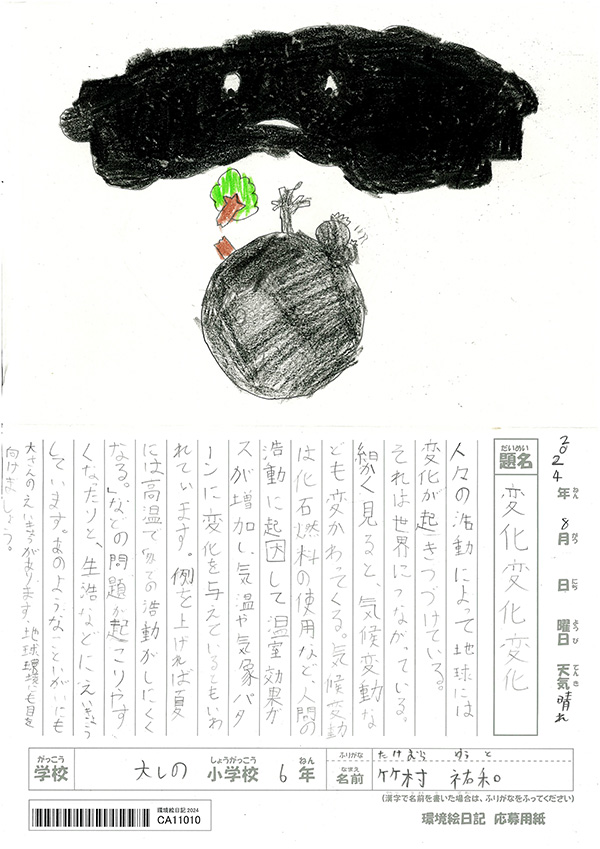 2024年 8月 日 曜日 天気 晴れ
ねん がつ にち ようび てんき
だいめい
題名
変化変化変化
人々の活動によって地球には
変化が起きつづけている。
それは世界につながっている。
細かく見ると、気候変動な
ども変かわってくる。気候変動
は化石燃料の使用など、人間の
活動に起因して温室効果が
スが増加し、気温や気象パタ
ーンに変化を与えているともいわ
れています。例を上げれば夏
には高温で外での活動がしにくく
なる。」などの問題が起こりやす
くなだりと、生活などにえいきょう
しています。あのようなこといがいにも
大さんのえいきょうがあります。地球環境にも目を
向けましょう。
がっこう しょうがっこう ねん
学校 大しの 小学校 6年
ふりがな たけむら ゆうと
なまえ
名前 竹村 祐和
(漢字で名前を書いた場合は、ふりがなをふってください)
環境絵日記2024
CA11010
環境絵日記 応募用紙